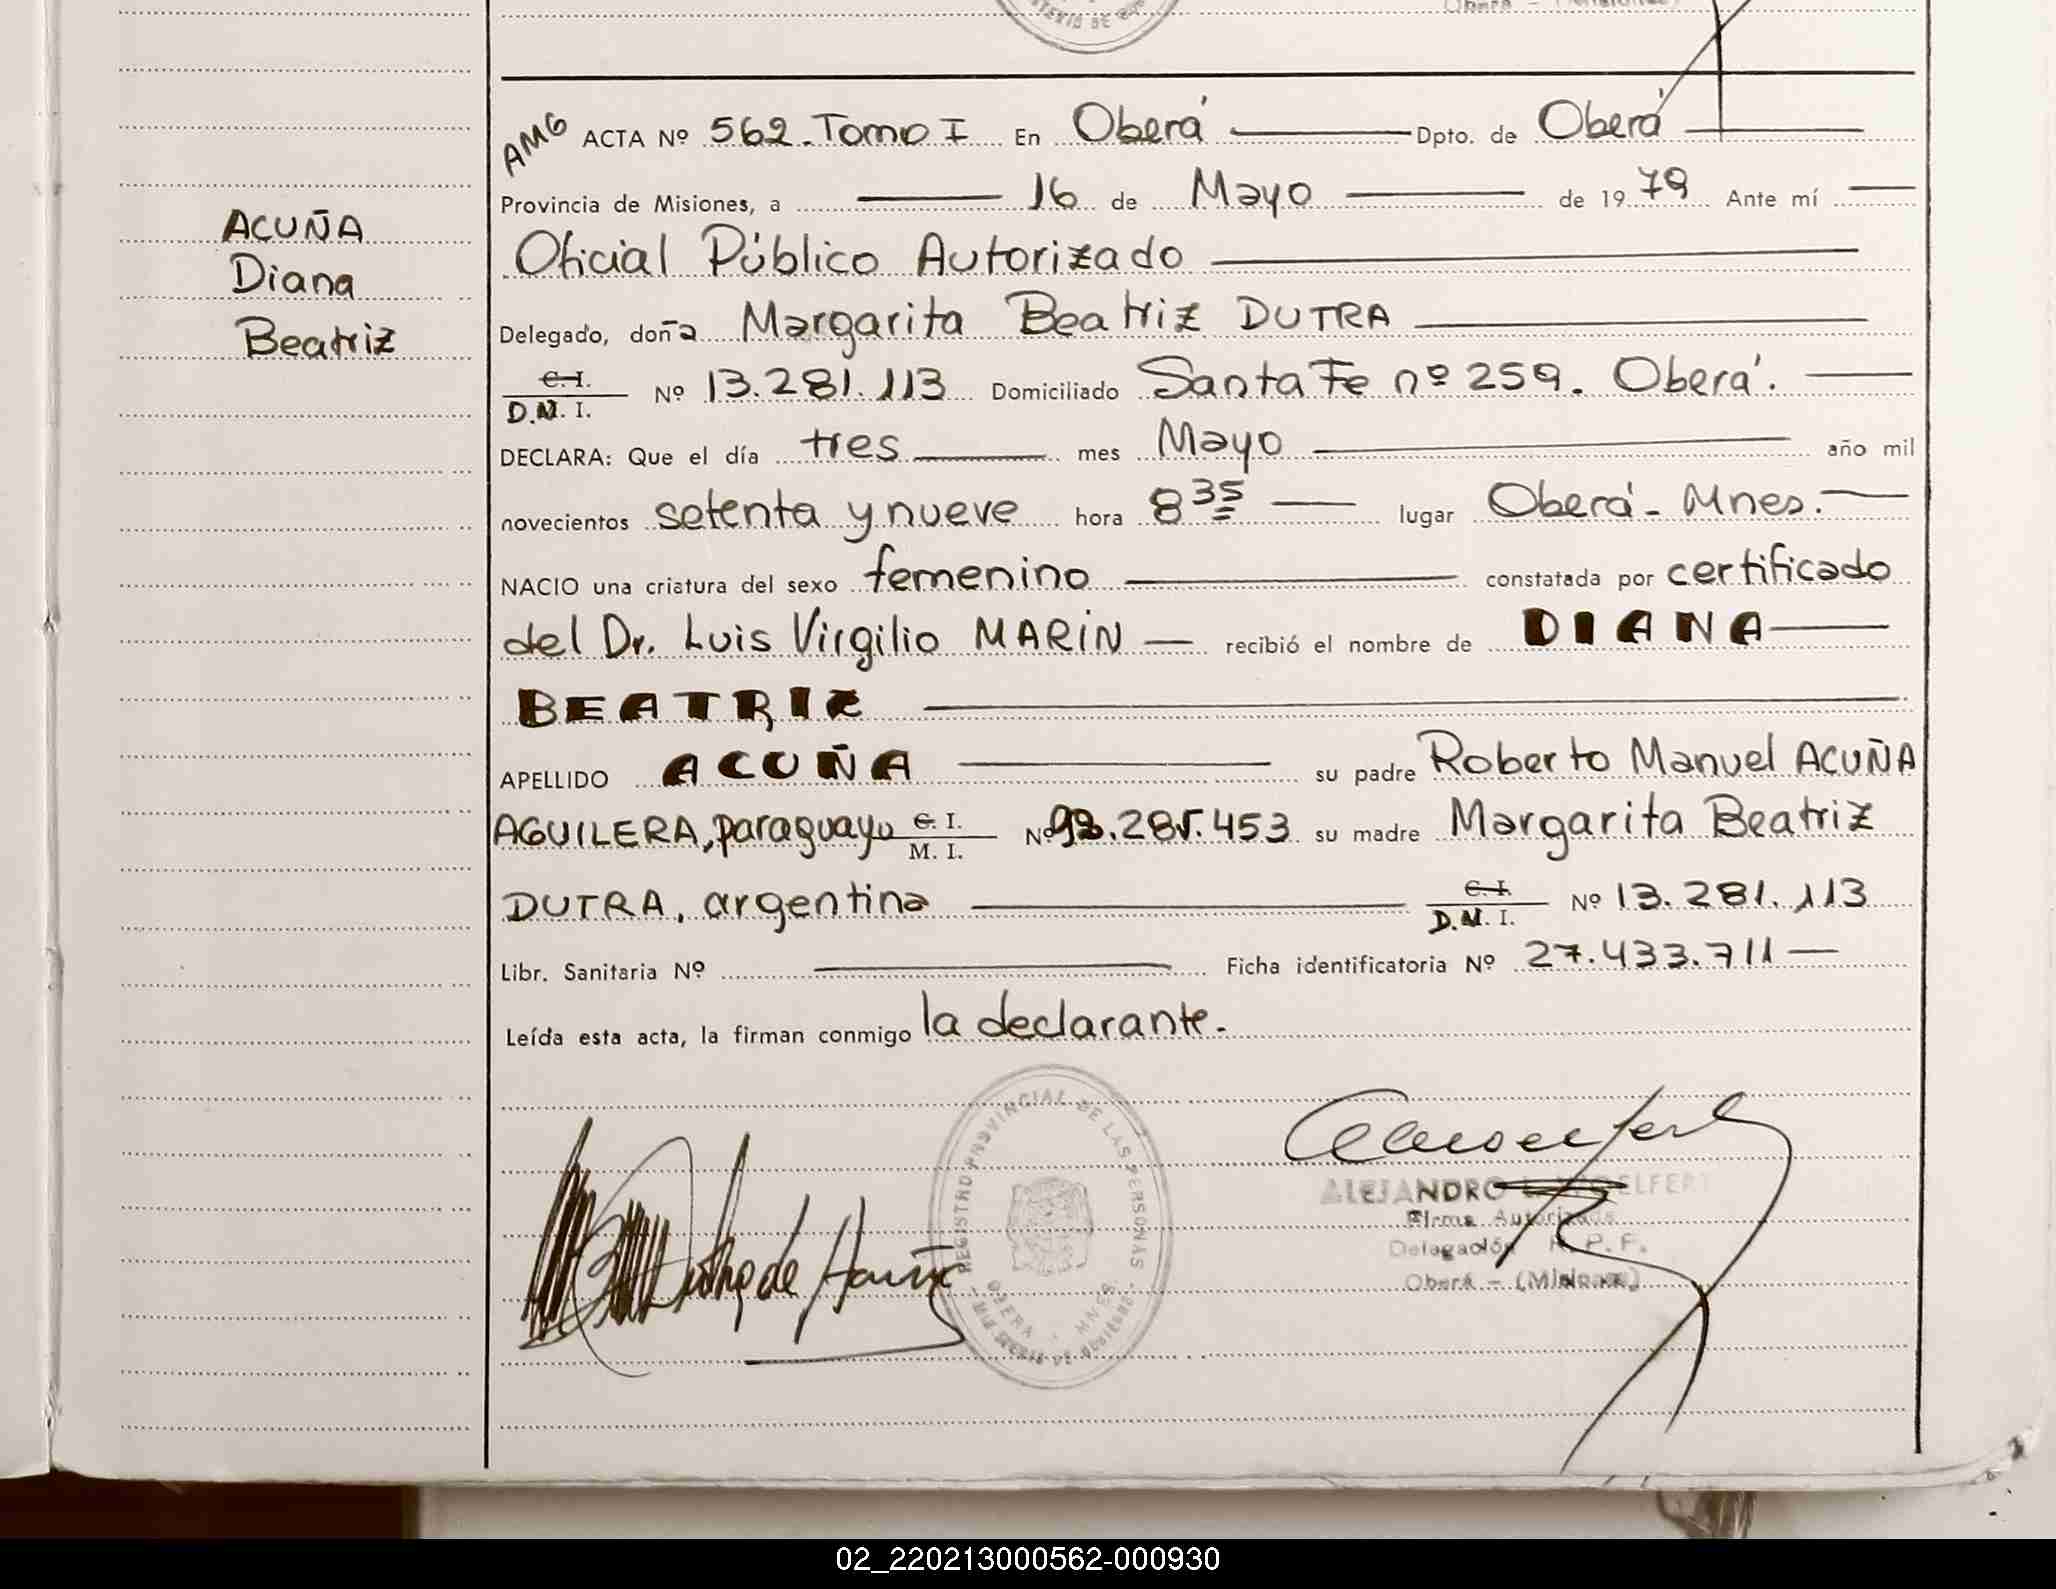 AMG ACTA Nº 562. Tomo I En Oberá Dpto. de Oberá
Provincia de Misiones, a 16 de Mayo de 1979 Ante mí
Oficial Público Autorizado
ACUÑA
Diana
Beatriz
Delegado, doña Margarita Beatriz DUTRA
C. I. / D.N. I. Nº 13.281.113 Domiciliado Santa Fe nº 259. Oberá.
DECLARA: Que el día tres mes Mayo año mil
novecientos setenta y nueve hora 8 35 lugar Oberá - Mnes.
NACIO una criatura del sexo femenino constatada por certificado
del Dr. Luis Virgilio MARIN recibió el nombre de DIANA
BEATRIZ
APELLIDO ACUÑA su padre Roberto Manuel ACUÑA
AGUILERA, paraguayo C. I. / M. I. Nº 285.453 su madre Margarita Beatriz
DUTRA, argentina C. I. / D.N. I. Nº 13.281.113
Libr. Sanitaria Nº Ficha identificatoria Nº 27.433.711
Leída esta acta, la firman conmigo la declarante.
REGISTRO PROVINCIAL DE LAS PERSONAS
OBERA - MNES
ALEJANDRO
Firma Autorizada
Delegación R.P.F.
Oberá - (Misiones)
02_220213000562-000930